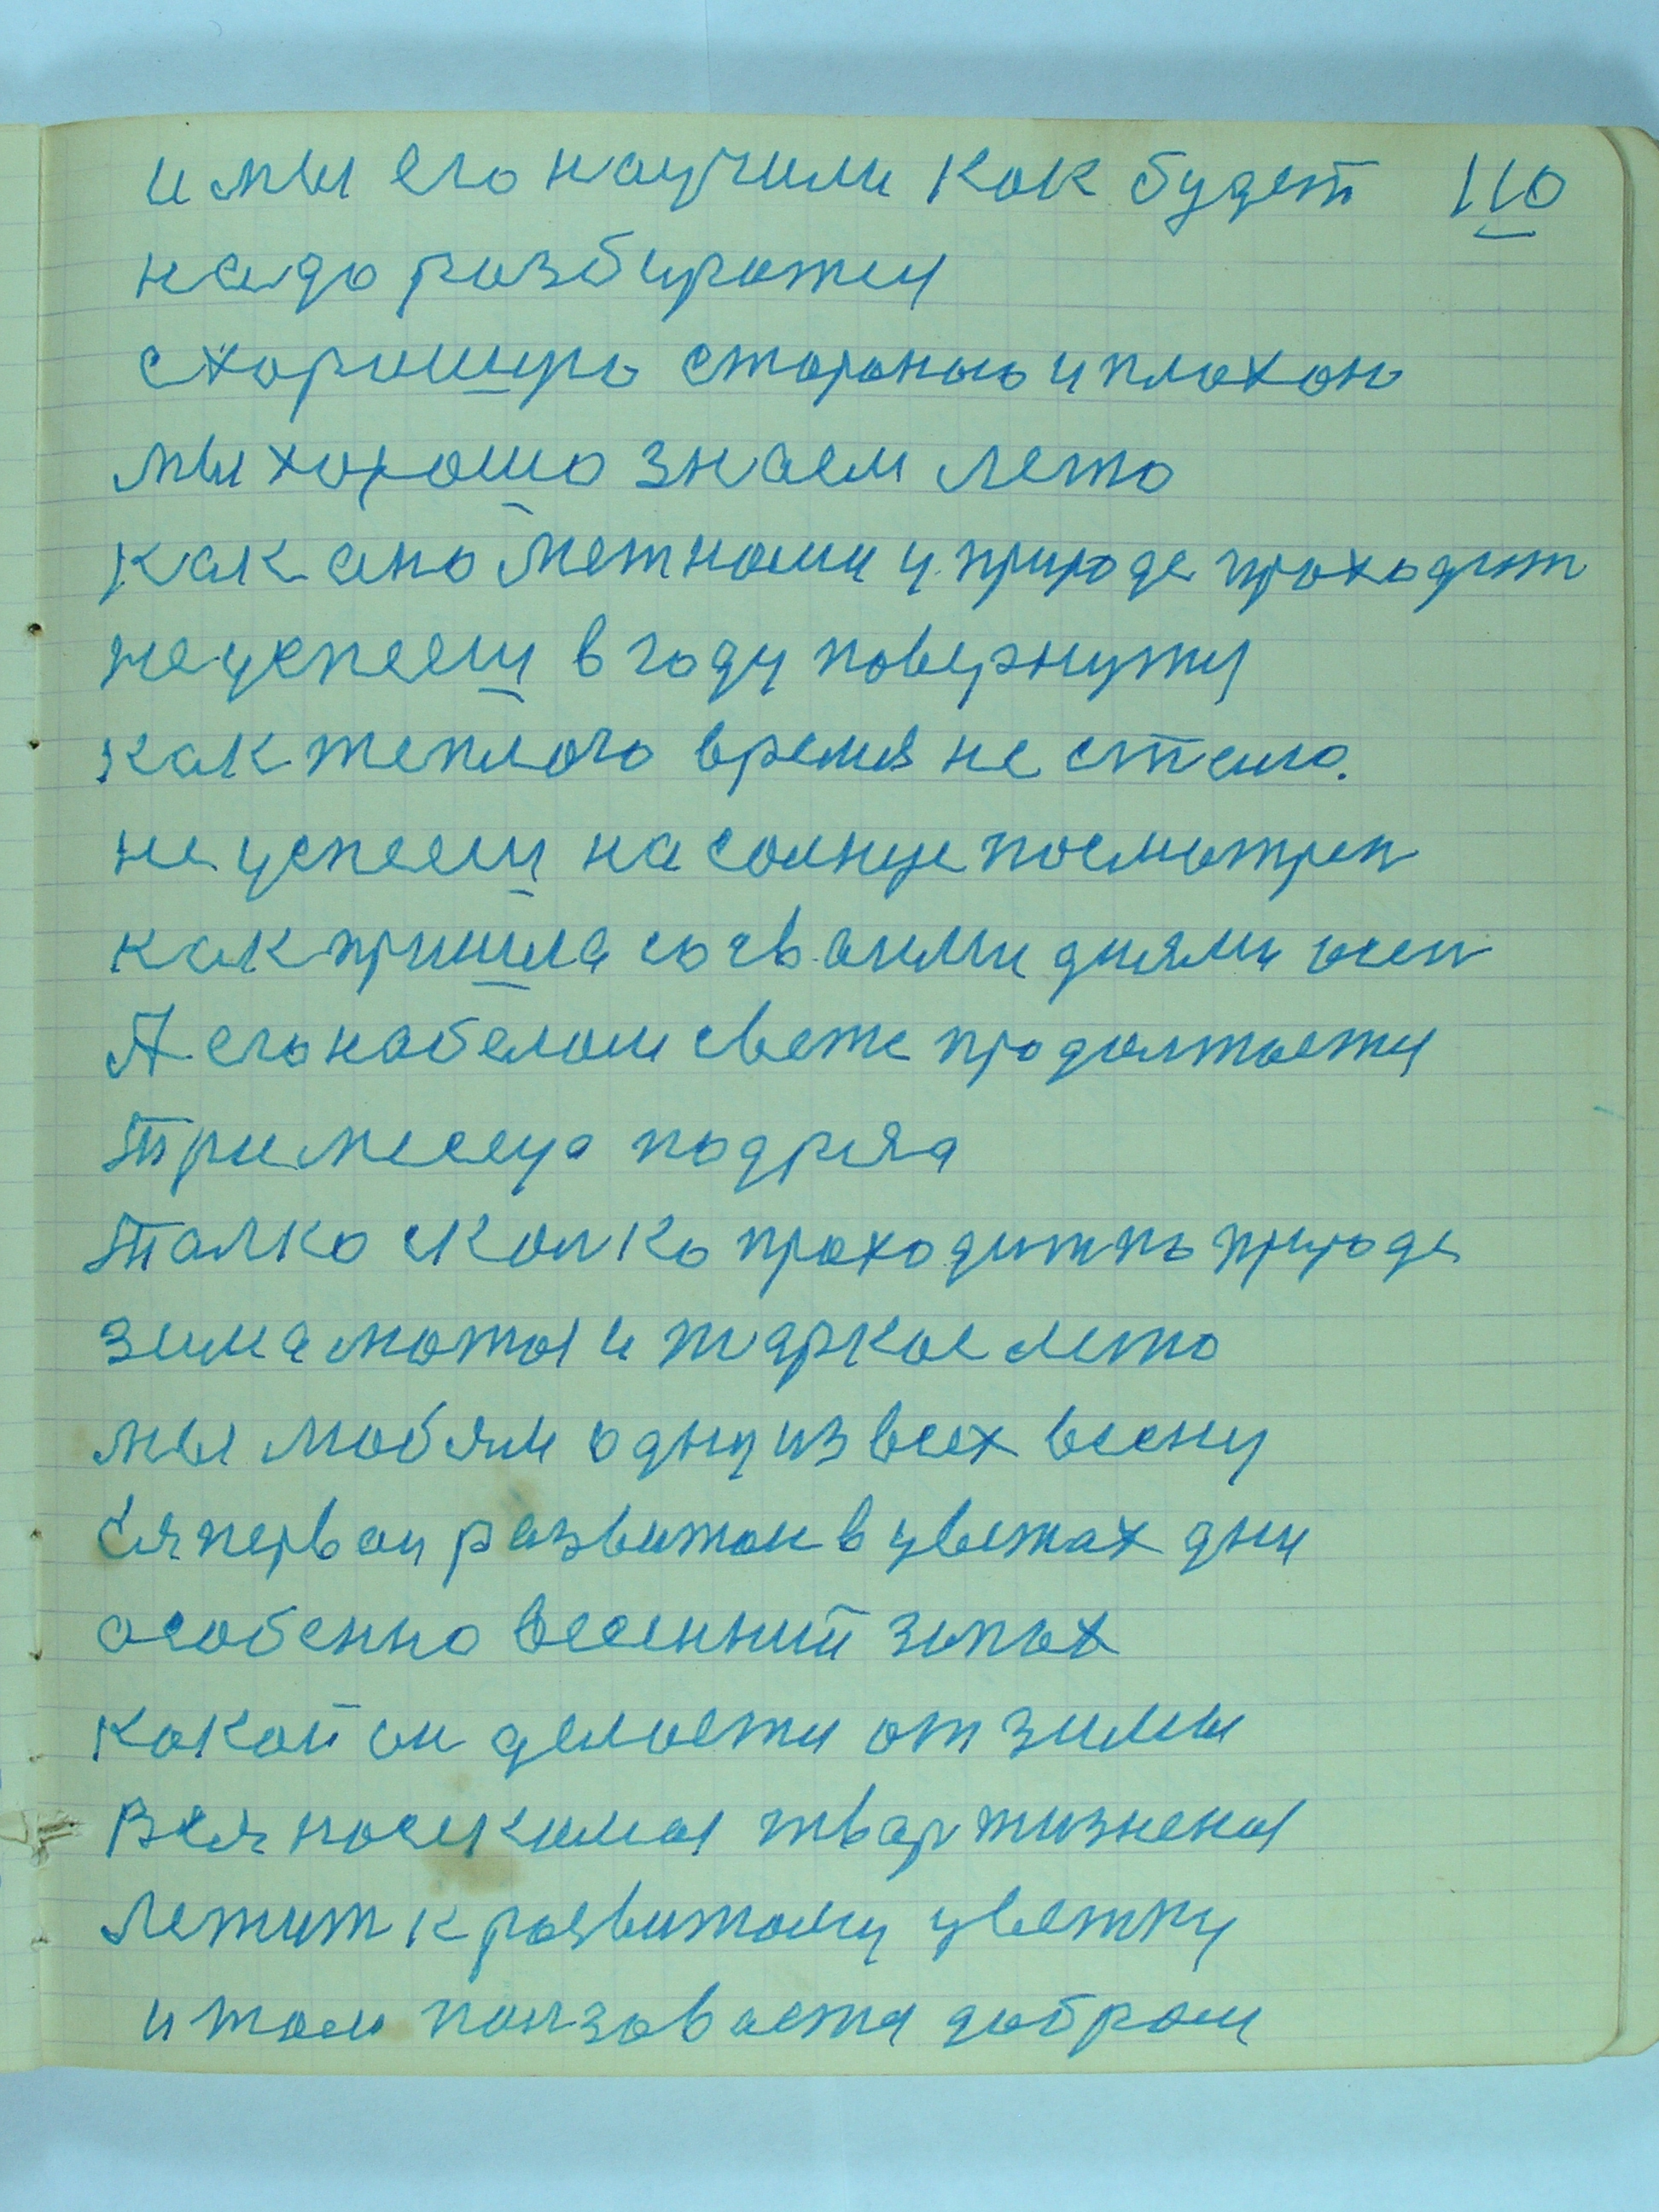 и мы его научили как будет 110
надо разбиратся
схорошую стораною и плохою
мы хорошо знаем лето
как ано между нами у природе проходит
не успееш в году повернутся
как теплого время не стало.
не успееш на солнце посмотреть
как пришла со сваими днями осен
А его на белом свете продолжается
три месеца подряд
Толко сколко проходит по природе
зима матая и жаркое лето
мы любям одну из всех весну
Ея первои развитои в цветах дни
особенно весенний запах
какой он делается от зимы
Вся насикомая твар жизненая
Летит к развитому цветку
и там ползовается добром